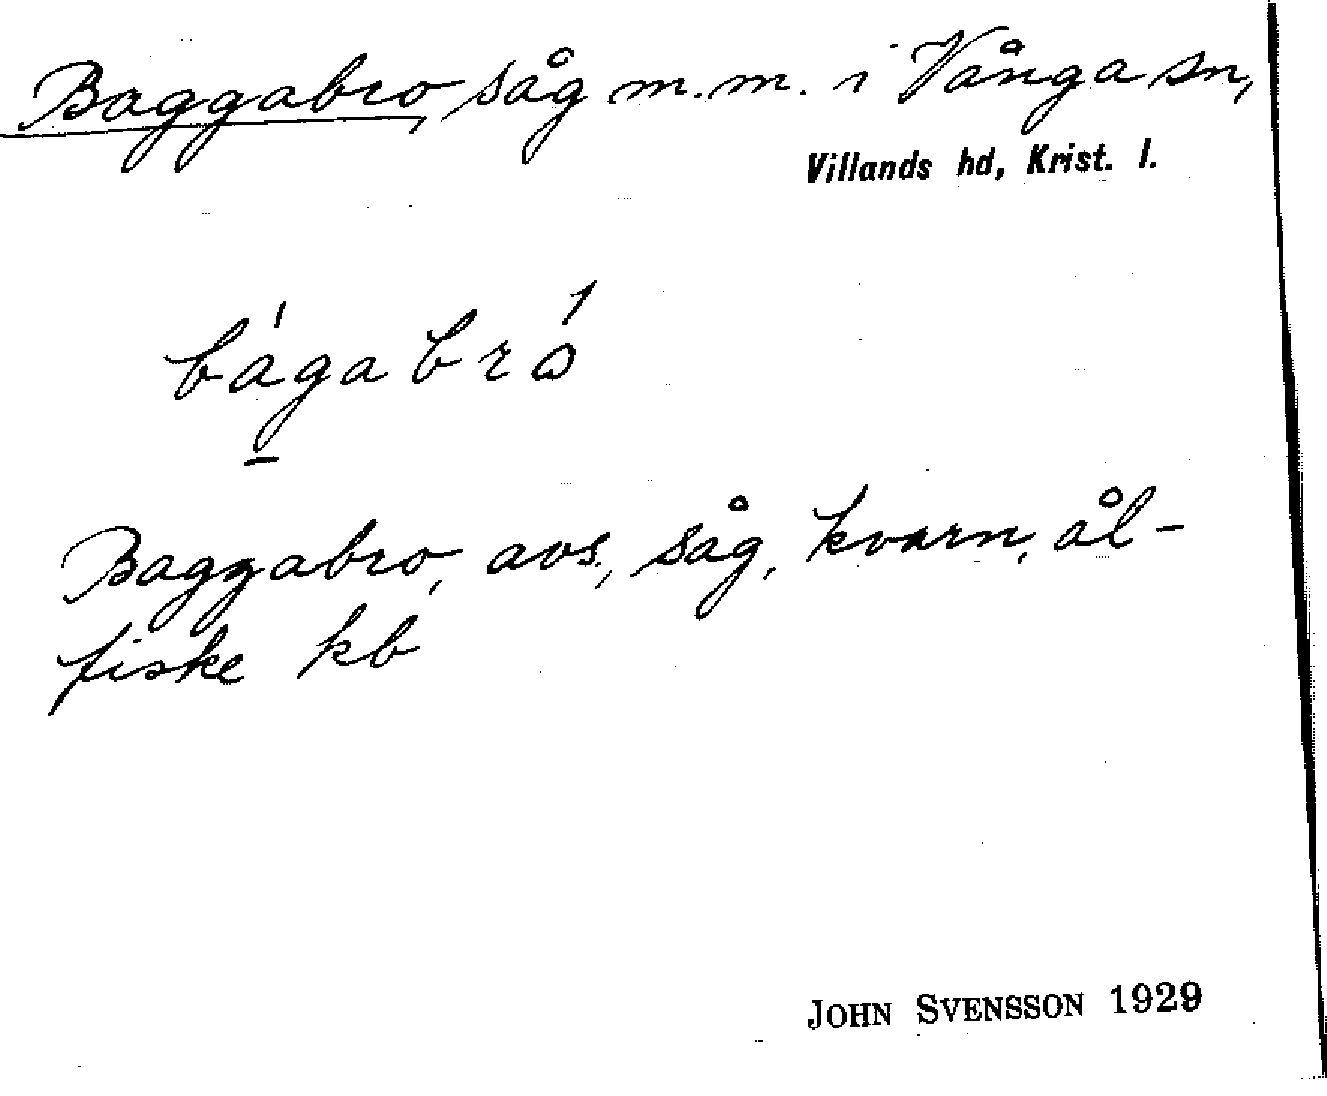 Baggabro, såg m.m. i Vånga sn,
Villands hd, Krist. l.
bágabró
Baggabro, avs., såg, kvarn, ål-
fiske kb
JOHN SVENSSON 1929